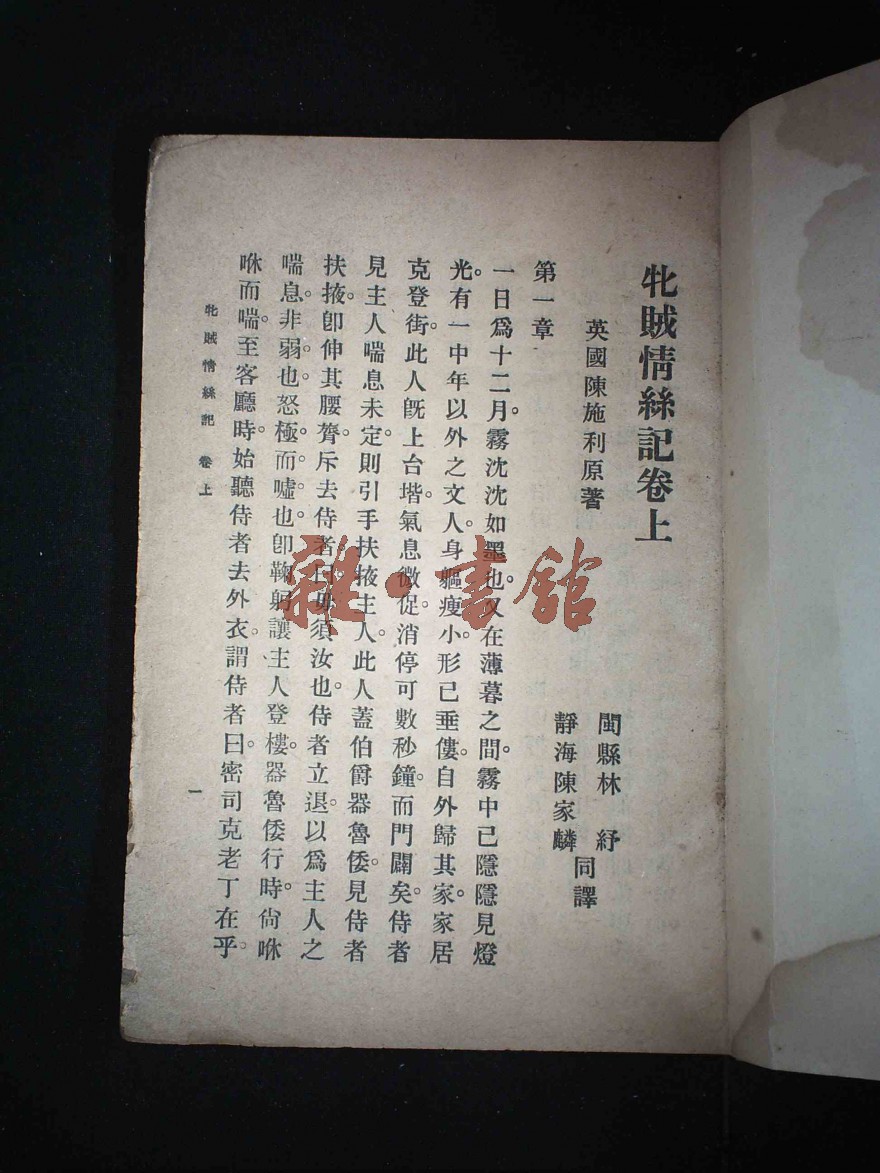 牝賊情絲記卷上
英國陳施利原著
閩縣林　紓
靜海陳家麟
同譯
第一章
一日爲十二月。霧沈沈如墨也。又在薄暮之間。霧中已隱隱見燈
光。有一中年以外之文人。身軀瘦小。形已垂僂。自外歸其家。家居
克登街。此人既上台堦。氣息微促。消停可數秒鐘。而門闢矣。侍者
見主人喘息未定。則引手扶掖主人。此人蓋伯爵器魯倭。見侍者
扶掖。卽伸其腰膂。斥去侍者曰。毋須汝也。侍者立退。以爲主人之
喘息。非弱也。怒極而噓也。卽鞠躬讓主人登樓。器魯倭行時。尙咻
咻而喘。至客廳時。始聽侍者去外衣。謂侍者曰。密司克老丁在乎。
牝賊情絲記　卷上
一
雜·書館